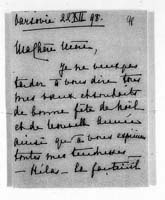 Varsovie 22 XII 98.
Ma Chère Mère,
Je ne veux pas
tarder à vous dire tous
mes vœux
de bonne fête de Noël
et de Nouvelle Année
ainsi que vous exprimer
toutes mes tendresses –
– Hélas – le